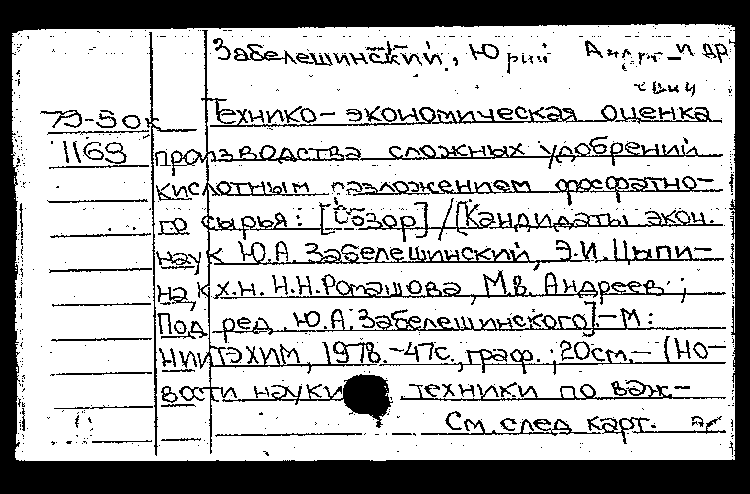 Забелешинский, Юрий Андр. и др
79-50к Технико-экономическая оценка
1169 производства сложных удобрений
кислотным разложением фосфатно-
го сырья: [Обзор] / [Кандидаты экон.
наук Ю.А. Забелешинский, Э.И. Цыпи-
на, к.х.н. Н.Н. Ромашова, М.В. Андреев.;
Под ред. Ю.А. Забелешинского] - М:
НИИТЭХИМ, 1978. - 47с., граф.; 20см. - (Но-
вости науки техники по важ-
См. след карт.